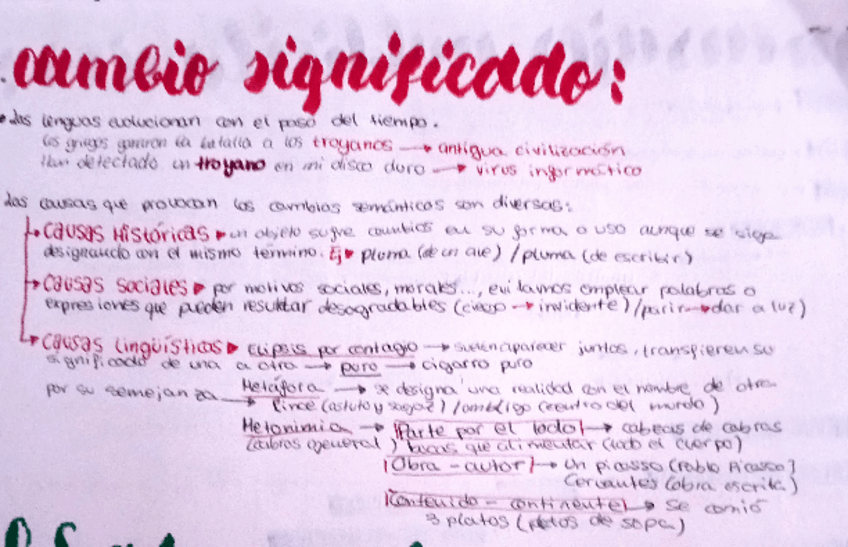 cambio significado:
• Las lenguas evolucionan con el paso del tiempo.
Los griegos ganaron la batalla a los troyanos → antigua civilización
Han detectado un troyano en mi disco duro → virus informático
Las causas que provocan los cambios semánticos son diversas:
→ Causas Históricas → un objeto sufre cambios en su forma o uso aunque se siga
designando con el mismo término. Ej → pluma (de un ave) / pluma (de escribir)
→ Causas sociales → por motivos sociales, morales..., evitamos emplear palabras o
expresiones que pueden resultar desagradables (ciego → invidente) / parir → dar a luz)
→ Causas Lingüísticas → Elipsis por contagio → suelen aparecer juntos, transfieren su
significado de una a otra → puro → cigarro puro
por su semejanza → Metáfora → se designa una realidad con el nombre de otra
→ Lince (astuto y sagaz) / ombligo (centro del mundo)
Metonimia → |Parte por el todo| → cabezas de cabras
(cabras general) bocas que alimentar (todo el cuerpo)
|Obra - autor| → Un picasso (Pablo Picasso)
Cervantes (obra escrita)
|Contenido - continente| → Se comió
3 platos (platos de sopa)